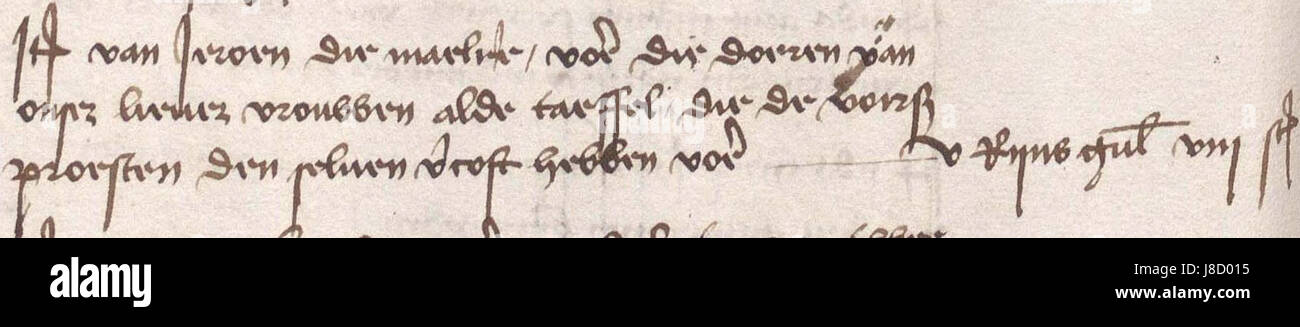 Itē van Jeroen die maelre, voer̄ die doeren van
onser liever vrouwen alde taeffel die de voirsz
proesten den seluen v̄coft hebben voer̄ v Rijns gul̄ viij st
alamy
Image ID: J8D015
www.alamy.com